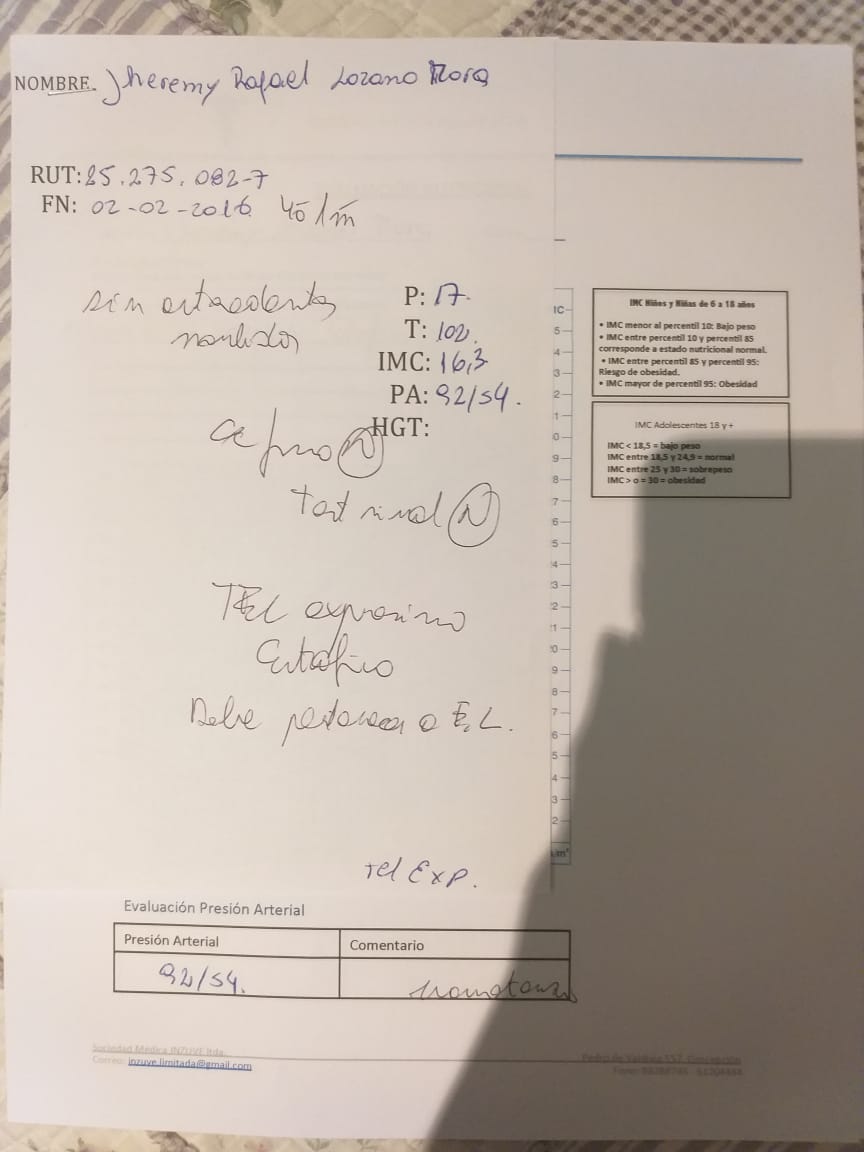 NOMBRE. Jheremy Rafael Lozano Mora
RUT: 25.275.082-7
FN: 02-02-2016 4ā 1m̄
sin antecedentes
morbidos
P: 17.
T: 102.
IMC: 16,3
PA: 92/54.
HGT:
Ex físico (N)
Test visual (N)
TEL expresivo
Estático
Debe permanecer a E.L.
Tel Exp.
IMC Niños y Niñas de 6 a 18 años
• IMC menor al percentil 10: Bajo peso
• IMC entre percentil 10 y percentil 85
corresponde a estado nutricional normal.
• IMC entre percentil 85 y percentil 95:
Riesgo de obesidad.
• IMC mayor de percentil 95: Obesidad
IMC Adolescentes 18 y +
IMC < 18,5 = bajo peso
IMC entre 18,5 y 24,9 = normal
IMC entre 25 y 30 = sobrepeso
IMC > o = 30 = obesidad
Evaluación Presión Arterial
Presión Arterial Comentario
92/54. normotenso
Sociedad Médica INZUVE ltda.
Correo: inzuve.limitada@gmail.com
Pedro de Valdivia 157, Concepción